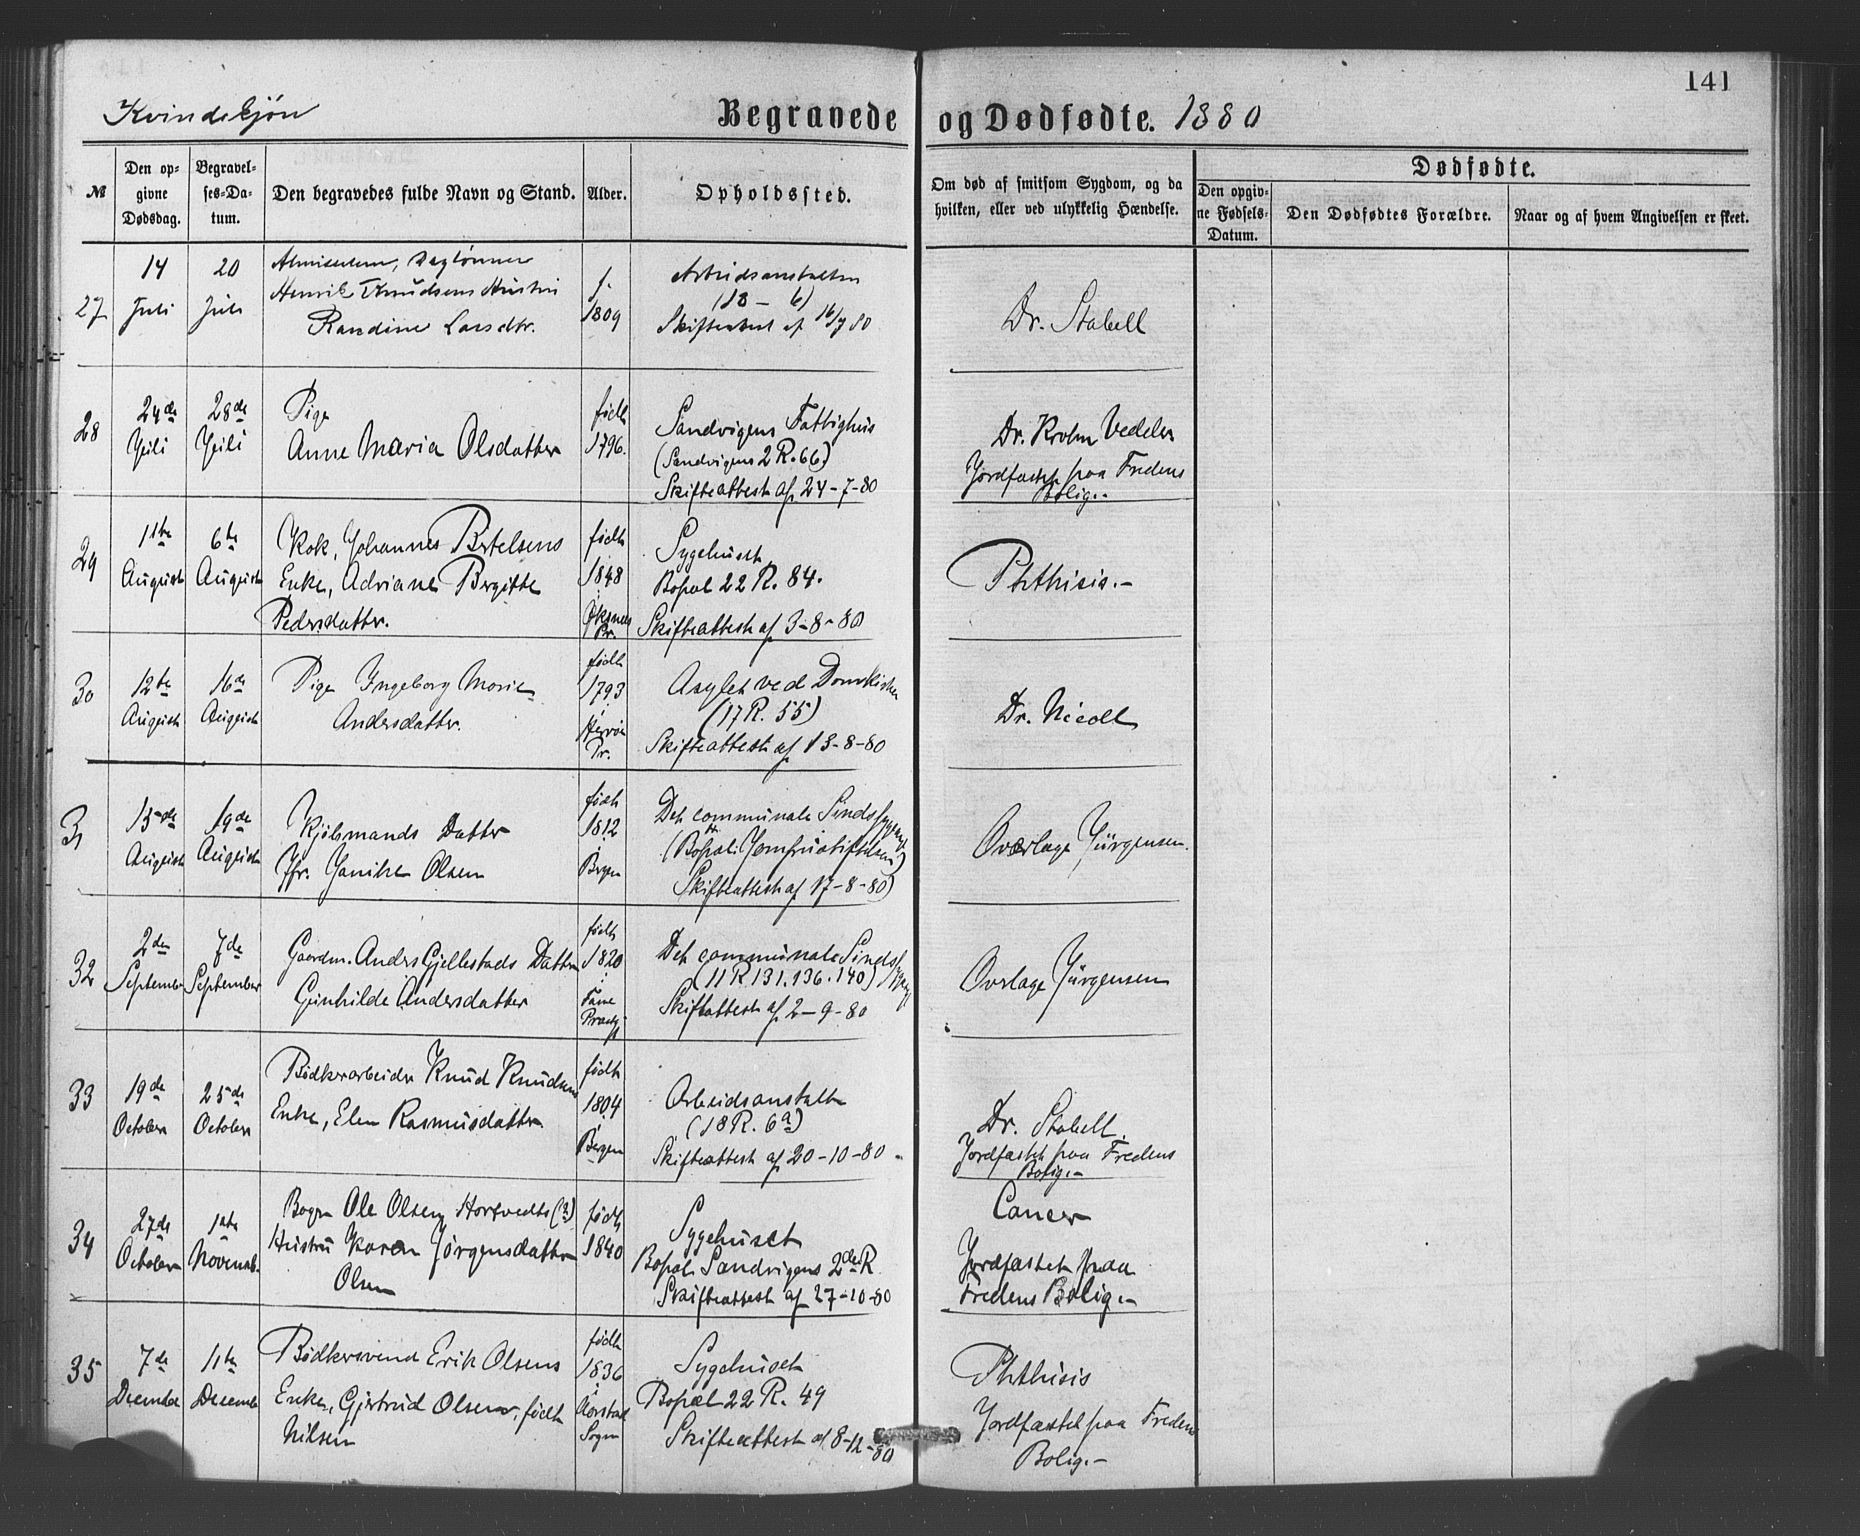 141
Kvindekjøn
Begravede og Dødfødte. 1880
№
Den opgivne Dødsdag.
Begravelses-Datum.
Den begravedes fulde Navn og Stand.
Alder.
Opholdssted.
Om død af smitsom Sygdom, og da hvilken, eller ved ulykkelig Hændelse.
Dødfødte.
Den opgivne Fødsels-Datum.
Den Dødfødtes Forældre.
Naar og af hvem Angivelsen er skeet.
27
14 Juli
20 Juli
Almisselem, Daglønner
Henrik Knudsens Hustru
Randine Larsdtr.
f. 1809
Arbeidsanstalten
(18 - 6)
Skifteattest af 16/7 80
Dr. Stabell
28
24de Juli
28de Juli
Pige
Anne Maria Olsdatter
født 1796.
Sandvigens Fattighus
(Sandvigens 2 R. 66)
Skifteattest af 24-7-80
Dr. Krohn Vedeler
Jordfæstet paa Fredens
Bolig.-
29
11te August
6te August
Kok, Johannes Bertelsens
Enke, Adriane Birgitte
Pedersdatter.
født 1848
Øksnes Pr.
Sygehuset
Bopæl 22 R. 84.
Skifteattest af 3-8-80
Phthisis.-
30
12te August
16de August
Pige Ingeborg Marie
Andersdatter.
født 1793
Herrø Pr.
Asylet ved Domkirken
(17 R. 55)
Skifteattest af 13-8-80
Dr. Nicoll
31
15de August
19de August
Kjøbmands Datter
Jfr. Janike Olsen
født 1812
Bergen
Det communale Sindssygeasyl
(Bopæl: Jomfrustiftelsen)
Skifteattest af 17-8-80)
Overlæge Jürgensen.
32
2den September
7de September
Gaardm. Anders Gjellestads Datter
Gunhilde Andersdatter
født 1820
Fane Præstgj
Det communale Sindssygeasyl
(11 R 131. 136. 140)
Skifteattest af 2-9-80
Overlæge Jürgensen
33
19de October
25de October
Bødkerarbeider Knud Knudsens
Enke, Elen Rasmusdatter
født 1804
Bergen
Arbeidsanstalten
(18 R. 6a)
Skifteattest af 20-10-80-
Dr. Stabell.
Jordfæstet paa Fredens
Bolig.-
34
27de October
1ste Novemb.
Bager Ole Olsen Hortvedts (?)
Hustru Karen Jørgensdatter
Olsen
født 1840
Sygehuset
Bopæl Sandvigens 2de R
Skifteattest af 27-10-80
Cancer
Jordfæstet paa
Fredens Bolig.-
35
7de December
11te December
Bødkersvend Erik Olsens
Enke, Gjertrud Olsen, født
Nilsen
født 1836
Aarstad Sogn
Sygehuset
Bopæl 22 R. 49
Skifteattest af 8-12-80
Phthisis
Jordfæstet paa Fredens
Bolig.-